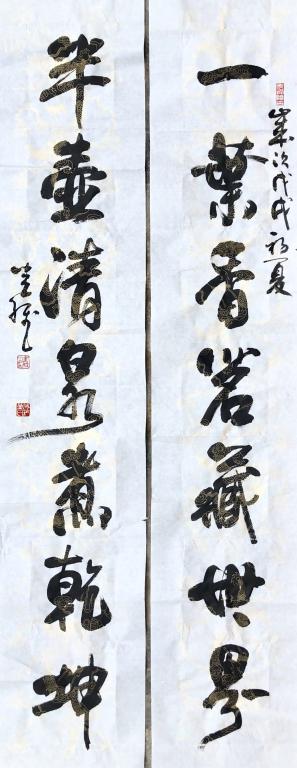 一葉香茗藏世界
歲次戊戌初夏
半壺清泉煮乾坤